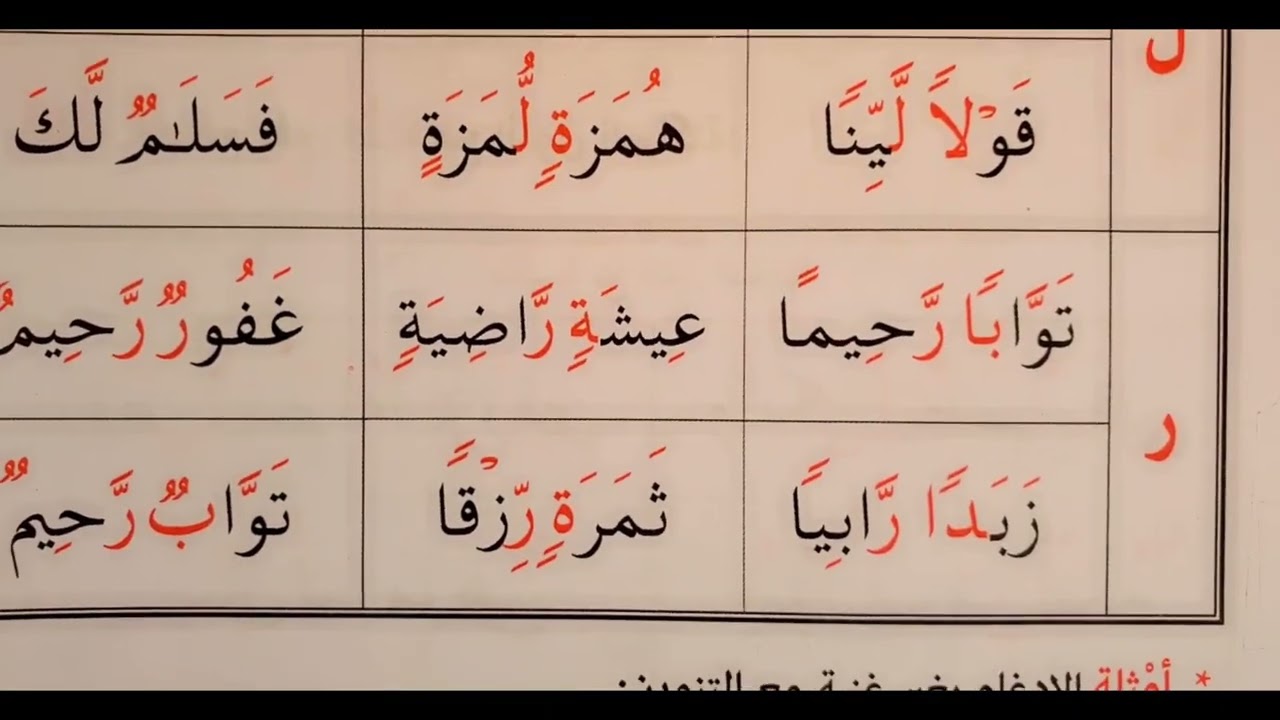 ل قَوْلًا لَّيِّنًا هُمَزَةٍ لُّمَزَةٍ فَسَلَـٰمٌ لَّكَ
ر تَوَّابًا رَّحِيمًا عِيشَةٍ رَّاضِيَةٍ غَفُورٌ رَّحِيمٌ
زَبَدًا رَّابِيًا ثَمَرَةٍ رِّزْقًا تَوَّابٌ رَّحِيمٌ
* أمْثلة الإدغام بغير غنة مع التنوين: